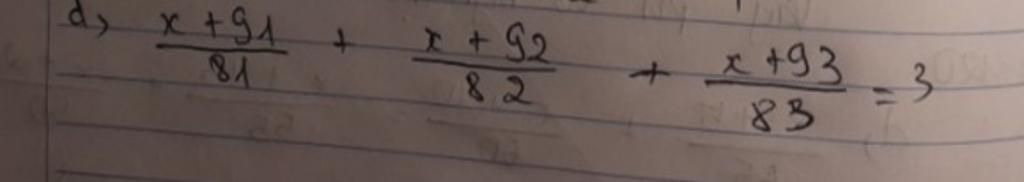 d, \frac{x+91}{81} + \frac{x+92}{82} + \frac{x+93}{83} = 3